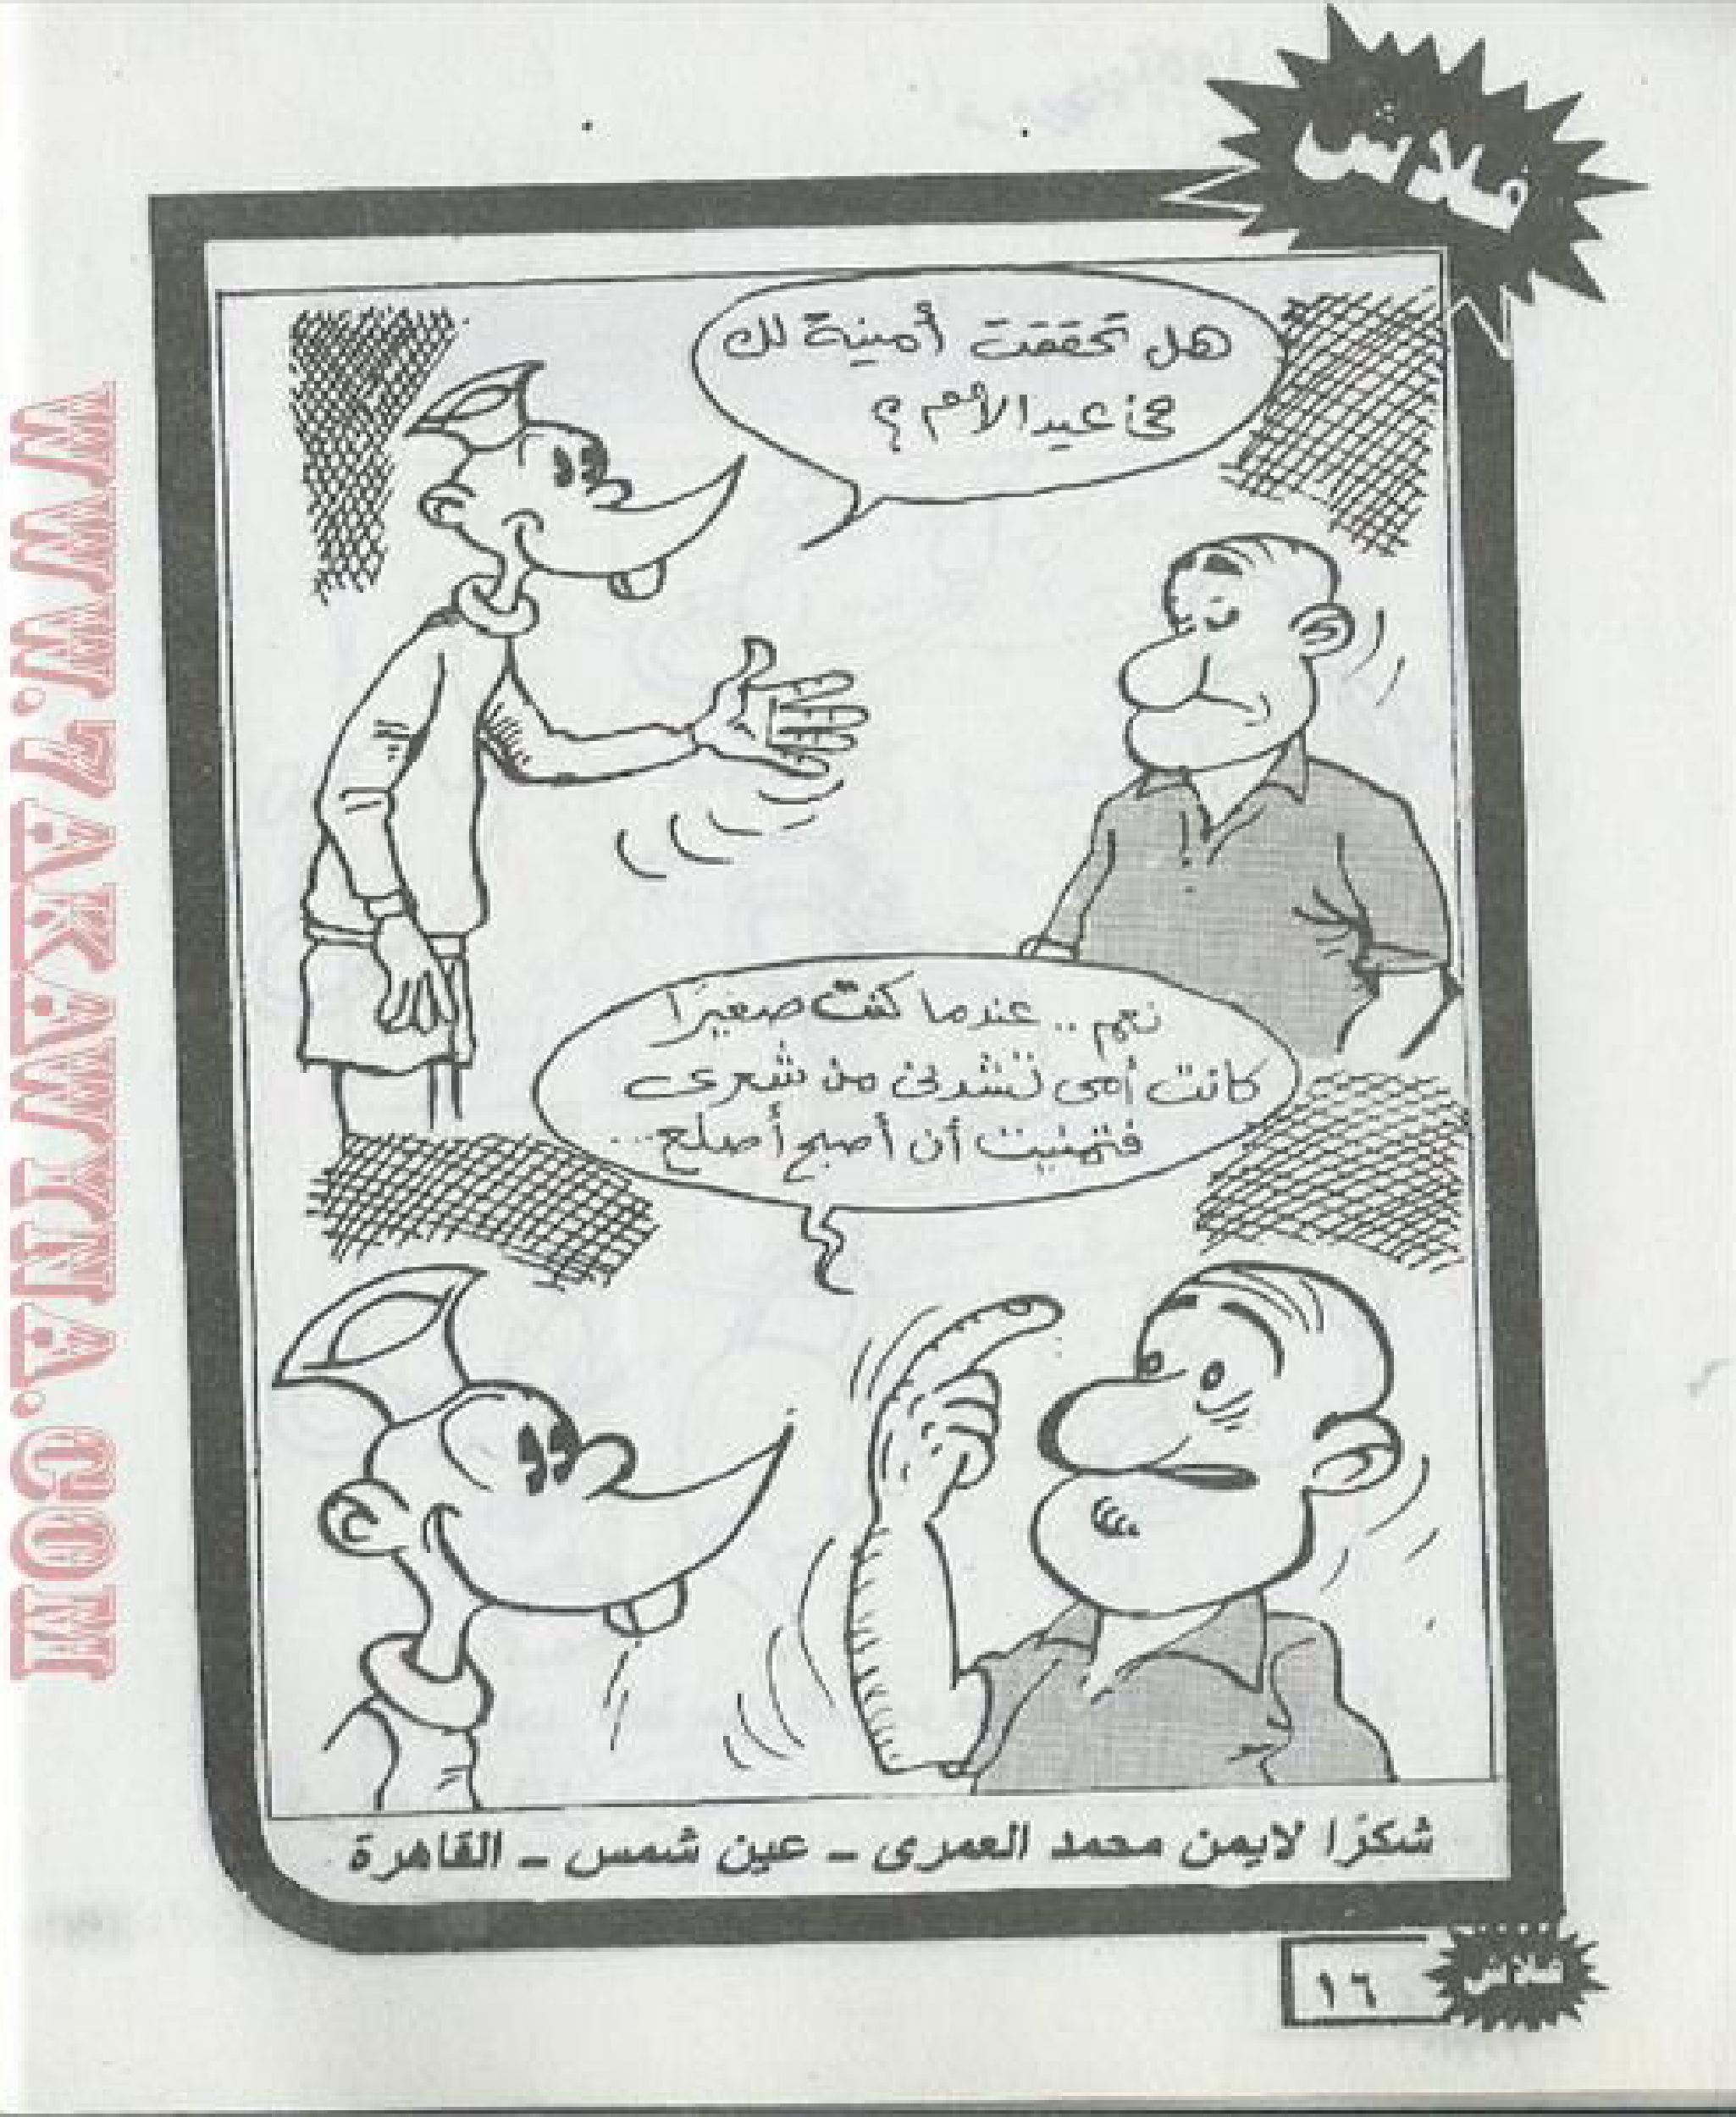 فلاش
هل تحققت أمنية لك
فى عيد الأم ؟
نعم .. عندما كنت صغيرًا
كانت أمى تشدنى من شعرى
فتمنيت أن أصبح أصلع ...
شكرًا لايمن محمد العمرى - عين شمس - القاهرة
١٦
فلاش
WWW.7AKAWINA.COM